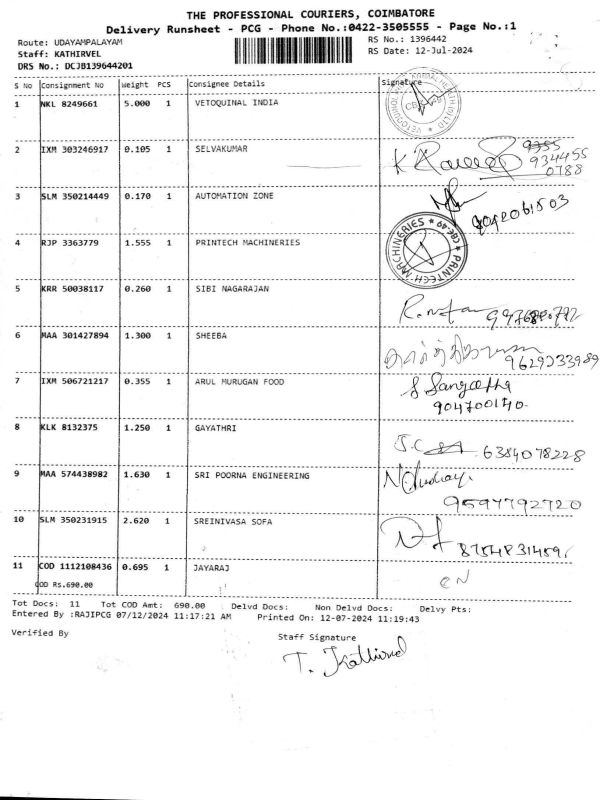 THE PROFESSIONAL COURIERS, COIMBATORE
Delivery Runsheet - PCG - Phone No.:0422-3505555 - Page No.:1
Route: UDAYAMPALAYAM
RS No.: 1396442
Staff: KATHIRVEL
RS Date: 12-Jul-2024
DRS No.: DCJB139644201
S No Consignment No Weight PCS Consignee Details Signature
1 NKL 8249661 5.000 1 VETOQUINAL INDIA
2 IXM 303246917 0.105 1 SELVAKUMAR
9355
934455
0788
3 SLM 350214449 0.170 1 AUTOMATION ZONE
4 RJP 3363779 1.555 1 PRINTECH MACHINERIES
PRINTECH MACHINERIES * CBE-49 *
5 KRR 50038117 0.260 1 SIBI NAGARAJAN
6 MAA 301427894 1.300 1 SHEEBA
9629333989
7 IXM 506721217 0.355 1 ARUL MURUGAN FOOD
S Sangeetha
904700140
8 KLK 8132375 1.250 1 GAYATHRI
6384078228
9 MAA 574438982 1.630 1 SRI POORNA ENGINEERING
9597792720
10 SLM 350231915 2.620 1 SREINIVASA SOFA
11 COD 1112108436 0.695 1 JAYARAJ
COD Rs.690.00
CN
Tot Docs: 11 Tot COD Amt: 690.00 Delvd Docs: Non Delvd Docs: Delvy Pts:
Entered By :RAJIPCG 07/12/2024 11:17:21 AM Printed On: 12-07-2024 11:19:43
Verified By
Staff Signature
T. Kathirvel